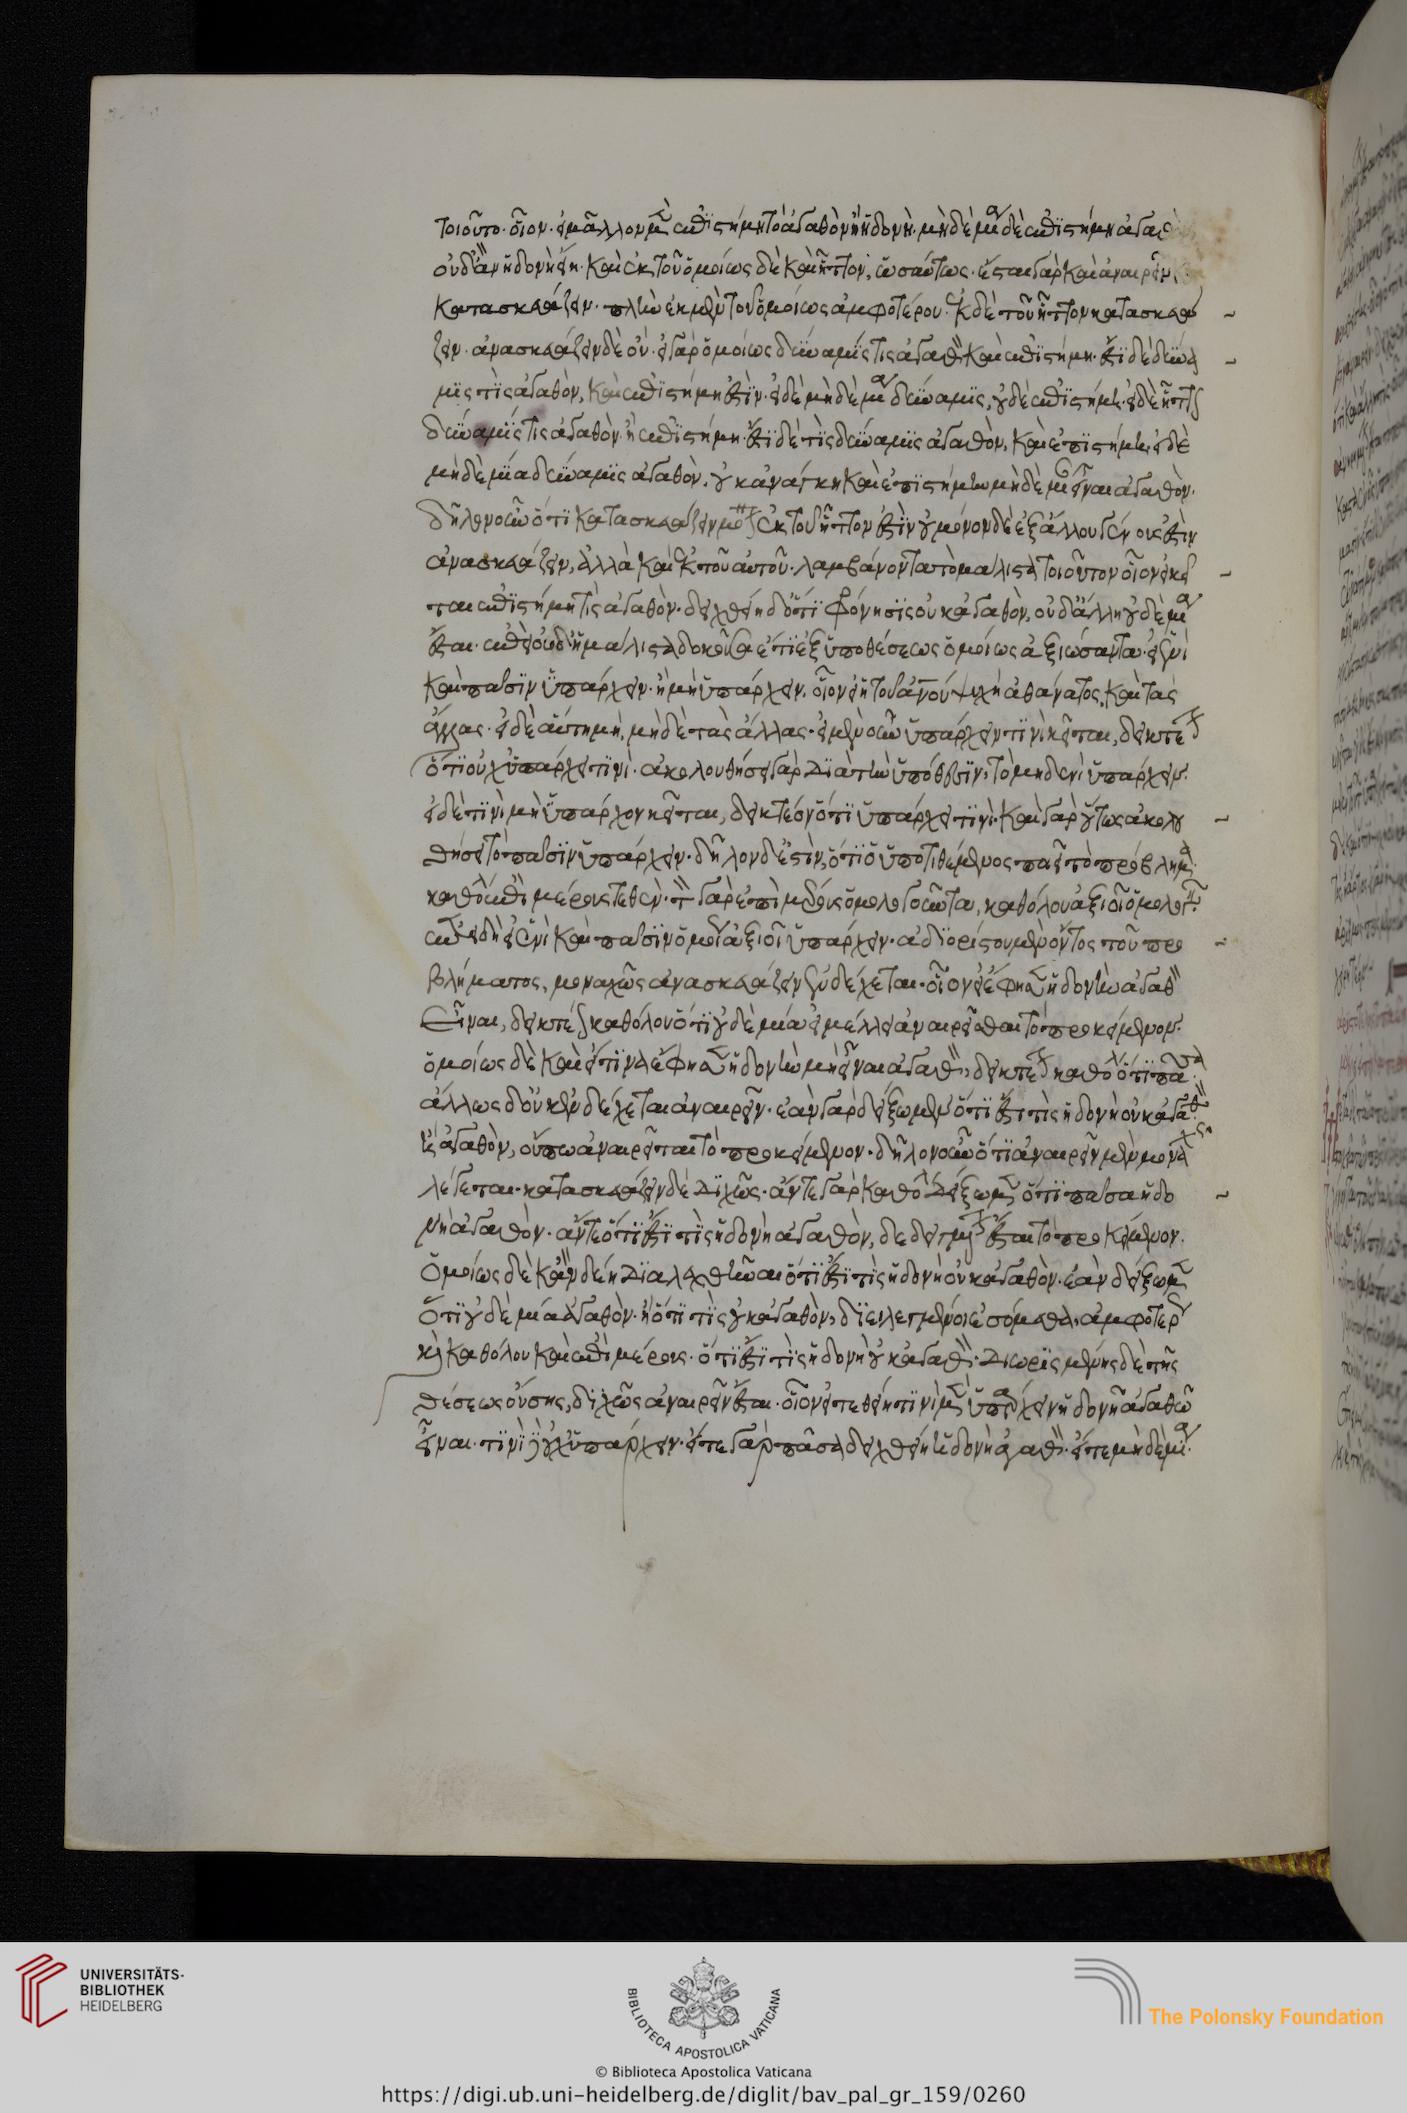 τοιοῦτο· οἷον· εἰ μᾶλλον μὲν ἐπιστήμη τὸ ἀγαθὸν ἢ ἡδονὴ· μηδὲ μία δὲ ἐπιστήμη ἀγαθὸ
οὐδ' ἂν ἡδονὴ εἴη· καὶ ἐκ τοῦ ὁμοίως δὲ καὶ ἧττον, ὡσαύτως· ἔσται γὰρ καὶ ἀναιρεῖν κ
κατασκευάζειν· πλὴν ἐκ μὲν τοῦ ὁμοίως ἀμφοτέρου· ἐκ δὲ τοῦ ἧττον κατασκευά
ζειν· ἀνασκευάζειν δὲ οὐ· εἰ γὰρ ὁμοίως δύναμίς τις ἀγαθὸν καὶ ἐπιστήμη· ἔστι δὲ δύνα
μις τὶς ἀγαθὸν, καὶ ἐπιστήμη ἐστὶν· εἰ δὲ μὴδὲ μία δύναμις, οὐδὲ ἐπιστήμη· εἰ δὲ ἧττον
δύναμίς τις ἀγαθὸν ἢ ἐπιστήμη· ἔστι δὲ τὶς δύναμις ἀγαθὸν, καὶ ἐπιστήμη· εἰ δὲ
μὴδὲ μία δύναμις ἀγαθὸν, οὐκ ἀνάγκη καὶ ἐπιστήμην μὴδὲ μίαν εἶναι ἀγαθὸν·
δῆλον οὖν ὅτι κατασκευάζειν μόνον ἐκ τοῦ ἧττον ἐστὶν οὐ μόνον δὲ ἐξ ἄλλου γένους ἐστὶν
ἀνασκευάζειν, ἀλλὰ καὶ ἐκ τοῦ αὐτοῦ· λαμβάνοντα τὸ μάλιστα τοιοῦτον οἷον εἰ κεῖ
ται ἐπιστήμη τὶς ἀγαθὸν· δειχθείη δ' ὅτι φρόνησις οὐκ ἀγαθὸν, οὐδ' ἄλλη οὐδὲ μία
ἔσται· ἐπεὶ οὐδ' ἡ μάλιστα δοκοῦσα ἔτι ἐξ ὑποθέσεως ὁμοίως ἀξιώσαντα· εἰ ἑνὶ
καὶ πᾶσιν ὑπάρχειν· ἢ μὴ ὑπάρχειν· οἷον εἰ ἡ τοῦ ἀνου ψυχὴ ἀθάνατος, καὶ τὰς
ἄλλας· εἰ δὲ αὕτη μὴ, μὴδὲ τὰς ἄλλας· εἰ μὲν οὖν ὑπάρχειν τινὶ κεῖται, δεικτέον
ὅτι οὐχ ὑπάρχει τινὶ· ἀκολουθήσει γὰρ διὰ τὴν ὑπόθεσιν, τὸ μηδενὶ ὑπάρχειν·
εἰ δὲ τινὶ μὴ ὑπάρχον κεῖται, δεικτέον ὅτι ὑπάρχει τινὶ· καὶ γὰρ οὕτως ἀκολου
θήσει τὸ πᾶσιν ὑπάρχειν· δῆλον δ' ἐστὶν, ὅτι ὁ ὑποτιθέμενος ποιεῖ τὸ πρόβλημα
καθόλου ἐπὶ μέρους τεθὲν· τὸν γὰρ ἐπὶ μέρους ὁμολογοῦντα, καθόλου ἀξιοῖ ὁμολογεῖν
ἐπειδὴ εἰ ἑνὶ καὶ πᾶσιν ὁμοίως ἀξιοῖ ὑπάρχειν· ἀδιορίστου μὲν ὄντος τοῦ προ
βλήματος, μοναχῶς ἀνασκευάζειν ἐνδέχεται· οἷον εἰ ἔφησεν ἡδονὴν ἀγαθὸν
εἶναι, δεικτέον καθόλου ὅτι οὐδὲ μία εἰ μέλλει ἀναιρεῖσθαι τὸ προκείμενον·
ὁμοίως δὲ καὶ εἰ τινὰ ἔφησεν ἡδονὴν μὴ εἶναι ἀγαθὸν, δεικτέον καθόλου ὅτι πᾶσα
ἄλλως δ' οὐκ ἐνδέχεται ἀναιρεῖν· ἐὰν γὰρ δείξωμεν ὅτι ἔστι τὶς ἡδονὴ οὐκ ἀγαθὸν
ἢ ἀγαθὸν, οὔπω ἀναιρεῖται τὸ προκείμενον· δῆλον οὖν ὅτι ἀναιρεῖν μὲν μοναχῶς
λέγεται· κατασκευάζειν δὲ διχῶς· ἄν τε γὰρ καθόλου δείξωμεν ὅτι πᾶσα ἡδο
νὴ ἀγαθὸν· ἄν τε ὅτι ἔστι τὶς ἡδονὴ ἀγαθὸν, δεδειγμένον ἔσται τὸ προκείμενον·
ὁμοίως δὲ κἂν δέη διαλεχθῆναι ὅτι ἔστι τὶς ἡδονὴ οὐκ ἀγαθὸν· ἐὰν δείξωμεν
ὅτι οὐδὲ μία ἀγαθὸν· ἢ ὅτι τὶς οὐκ ἀγαθὸν, διειλεγμένοι ἐσόμεθα, ἀμφοτέρως
καὶ καθόλου καὶ ἐπὶ μέρους· ὅτι ἔστι τὶς ἡδονὴ οὐκ ἀγαθὸν· διωρισμένης δὲ τῆς
θέσεως οὔσης, διχῶς ἀναιρεῖν ἔσται· οἷον εἰ τεθείη τινὶ μὲν ὑπάρχειν ἡδονῆ ἀγαθῶ
εἶναι· τινὶ δὲ οὐχ ὑπάρχειν· εἴτε γὰρ πᾶσα δειχθείη ἡδονὴ ἀγαθὸν· εἴτε μὴδὲ μία·
UNIVERSITÄTS-
BIBLIOTHEK
HEIDELBERG
BIBLIOTECA APOSTOLICA VATICANA
The Polonsky Foundation
© Biblioteca Apostolica Vaticana
https://digi.ub.uni-heidelberg.de/diglit/bav_pal_gr_159/0260